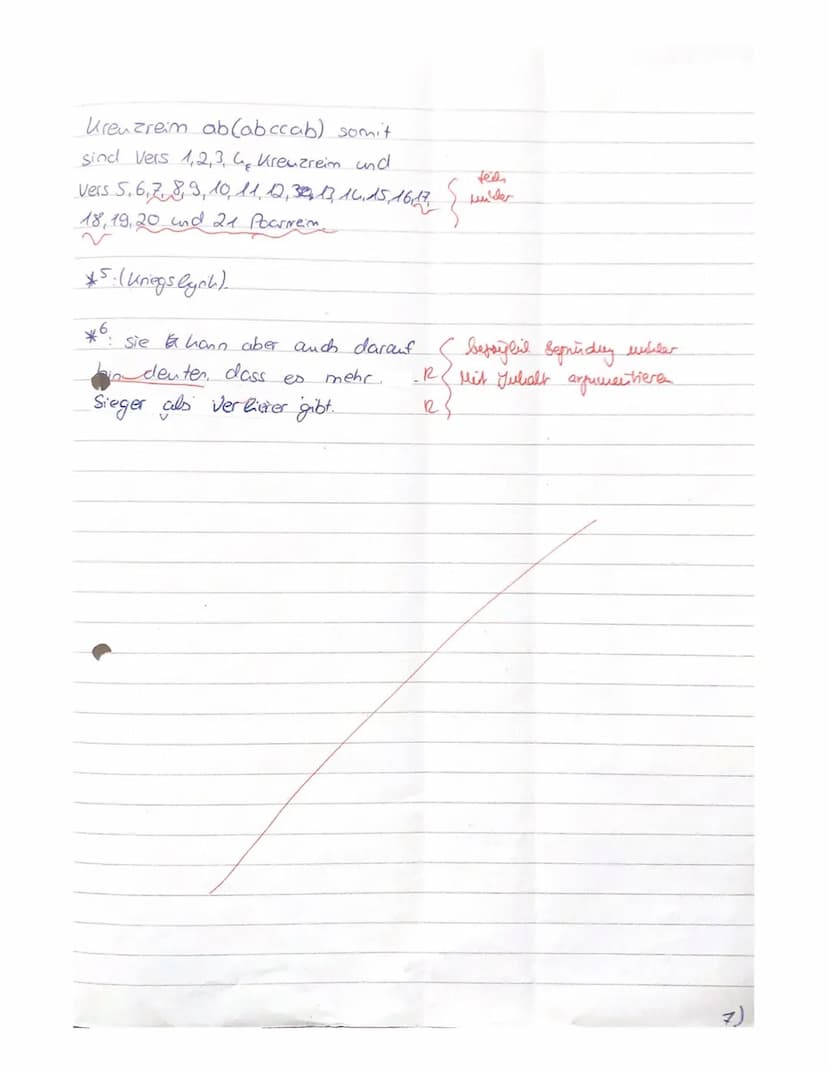 Kreuzreim ab(abccab) somit
sind Vers 1,2,3,4, Kreuzreim und
Vers 5,6,7,8,9,10,11,12,13,14,15,16,17,
teils
18,19,20 und 21 Paarreim
*5:(Kriegslyrik).
*6: sie kann aber auch darauf
hin deuten, dass es mehr R Mit Inhalt argumentieren
Sieger als Verlierer gibt. R
7)